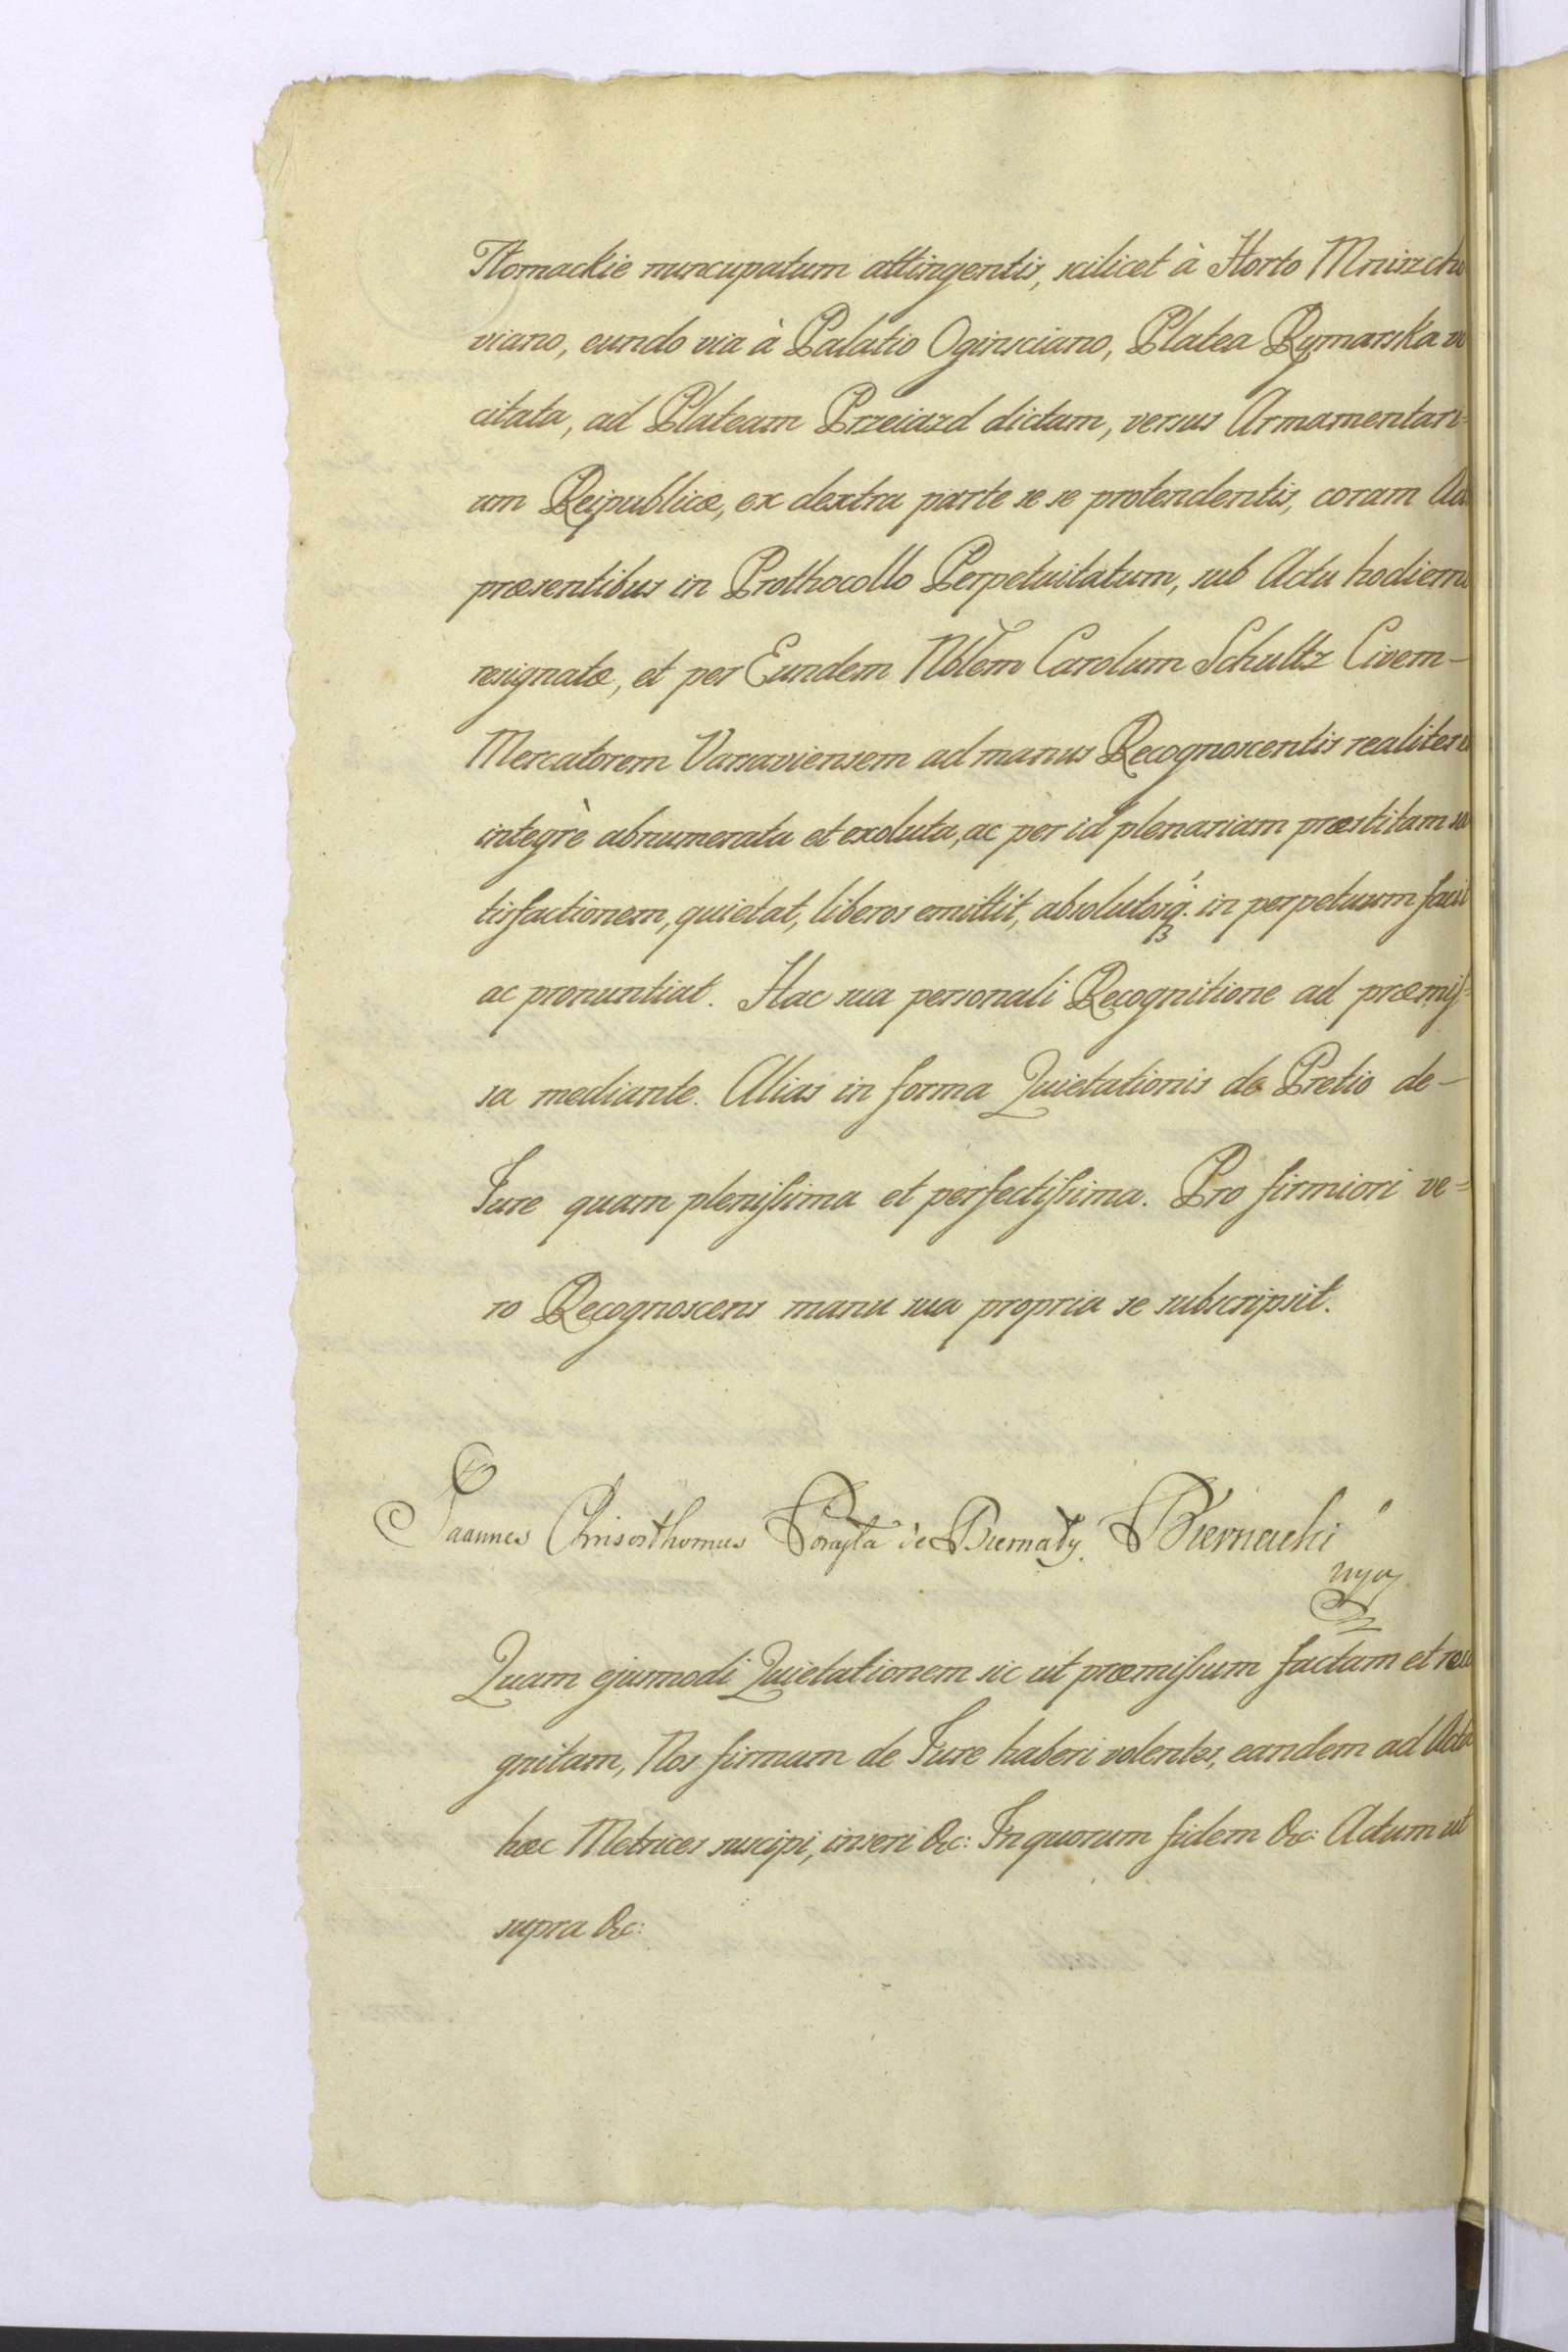 Tłomackie nuncupatum attingentis, scilicet à Horto Mniszcho
viano, eundo via à Palatio Oginsciano, Platea Rymarska vo
citata, ad Plateam Przeiazd dictam, versus Armamentari-
um Reipublicæ, ex dextra parte se se protendentis, coram Actis
præsentibus in Prothocollo Perpetuitatum, sub Actu hodierno
resignatæ, et per Eundem Nblem Carolum Schultz Civem-
Mercatorem Varsaviensem ad manus Recognoscentis realiter et
integrè abnumerata et exoluta, ac per id plenariam præstitam sa
tisfactionem, quietat, liberos emittit, absolutosq. in perpetuum facit
ac pronuntiat. Hac sua personali Recognitione ad præmis=
sa mediante. Alias in forma Quietationis de Pretio de-
Jure quam plenissima et perfectissima. Pro firmiori ve=
ro Recognoscens manu sua propria se subscripsit.
Joannes Chrisosthomus de Biernacki
mp
Quam ejusmodi Quietationem sic ut præmissum factam et reco
gnitam, Nos firmam de Jure haberi volentes, eandem ad Acta
hæc Metrices suscipi, inseri &c: In quorum fidem &c: Actum ut
supra &c: